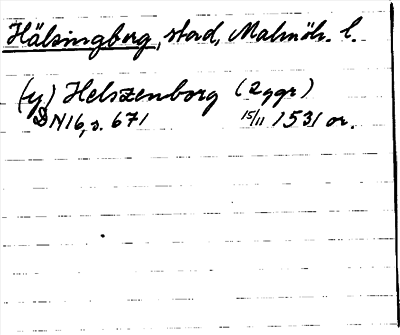 Hälsingborg, stad, Malmöh. l.
(y) Helszenborg (2 ggr)
DN 16, s. 671 15/11 1531 or.